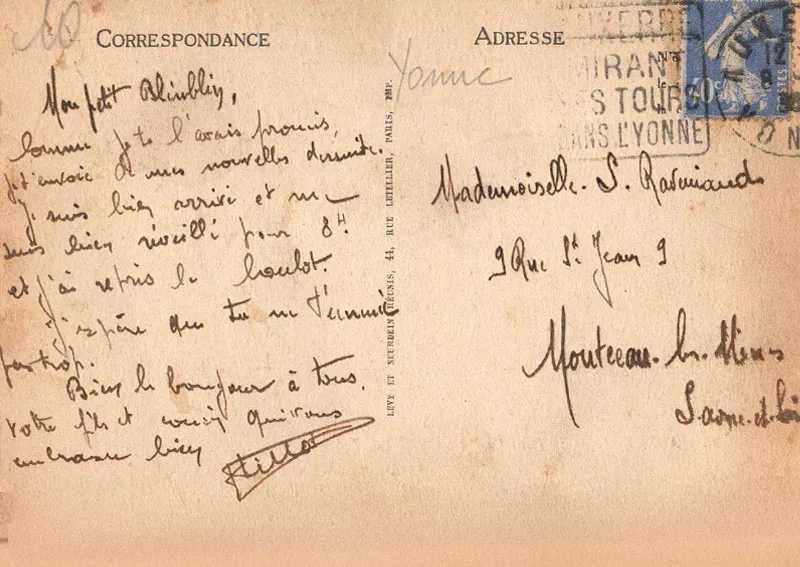 10
CORRESPONDANCE
Mon petit Blinblin,
Comme je te l'avais promis,
je t'envoie de mes nouvelles de suite.
Je suis bien arrivé et me
suis bien réveillé pour 8H
et j'ai repris le boulot.
J'espère que tu ne t'ennuie
pas trop.
Bien le bonjour à tous,
votre fils et cousin qui vous
embrasse bien
LEVY ET NEURDEIN RÉUNIS, 44, RUE LETELLIER, PARIS, IMP.
Yonne
ADRESSE
AUXERRE
MIRAN
SES TOURS
DANS L'YONNE
AUXE
12
8
YON
40c
POSTES
Mademoiselle S.
9 Rue St Jean 9
Montceau-les-Mines
Saone-et-Loi